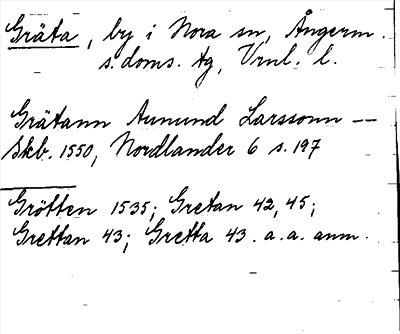 Gräta, by i Nora sn, Ångerm.
s. doms. tg, Vrnl. l.
Grätann Aumund Larssonn —
Skb. 1550, Nordlander 6 s. 197
Grötten 1535; Gretan 42, 45;
Grettan 43; Gretta 43. a. a. anm.